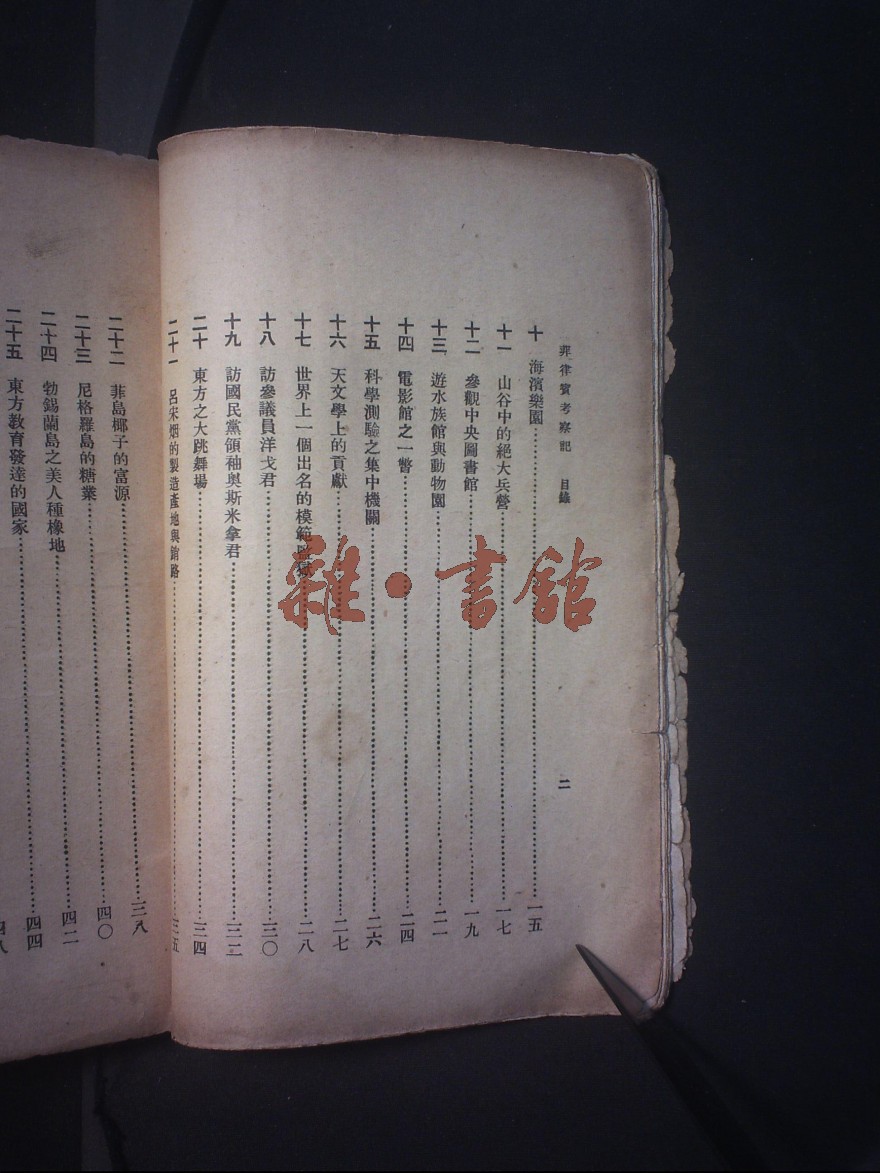 菲律賓考察記　目錄
二
十　海濱樂園……一五
十一　山谷中的絕大兵營……一七
十二　參觀中央圖書館……一九
十三　遊水族館與動物園……二一
十四　電影館之一瞥……二四
十五　科學測驗之集中機關……二六
十六　天文學上的貢獻……二七
十七　世界上一個出名的模範監獄……二八
十八　訪參議員洋戈君……三〇
十九　訪國民黨領袖奧斯米拿君……三二
二十　東方之大跳舞場……三四
二十一　呂宋烟的製造產地與銷路……三五
二十二　菲島椰子的富源……三八
二十三　尼格羅島的糖業……四〇
二十四　勃錫蘭島之美人種橡地……四二
二十五　東方教育發達的國家……四四
四八
雜·書館